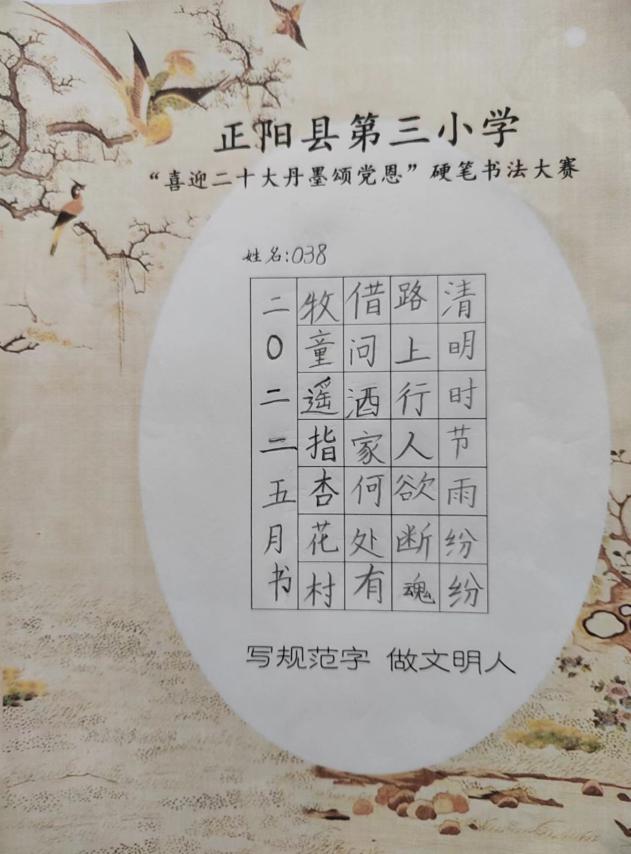 正阳县第三小学
“喜迎二十大丹墨颂党恩”硬笔书法大赛
姓名:038
清明时节雨纷纷
路上行人欲断魂
借问酒家何处有
牧童遥指杏花村
二0二二五月书
写规范字 做文明人